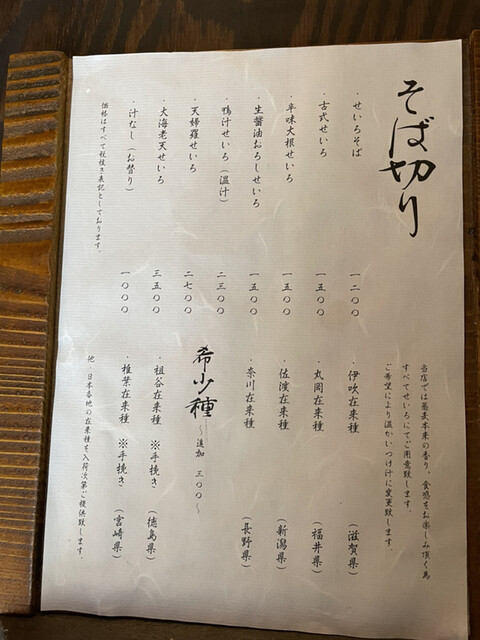 そば切り
・せいろそば 一二〇〇
・古式せいろ 一五〇〇
・辛味大根せいろ 一五〇〇
・生醤油おろしせいろ 一五〇〇
・鴨汁せいろ（温汁） 二三〇〇
・天婦羅せいろ 二七〇〇
・大海老天せいろ 三五〇〇
・汁なし（お替り） 一〇〇〇
価格はすべて税抜き表記としております。
当店では蕎麦本来の香り、食感をお楽しみ頂く為
すべてせいろにてご用意致します。
ご希望により温かいつけ汁に変更致します。
・伊吹在来種 （滋賀県）
・丸岡在来種 （福井県）
・佐渡在来種 （新潟県）
・奈川在来種 （長野県）
希少種 ～追加 三〇〇～
・祖谷在来種 ※手挽き （徳島県）
・椎葉在来種 ※手挽き （宮崎県）
他、日本各地の在来種を入荷次第ご提供致します。